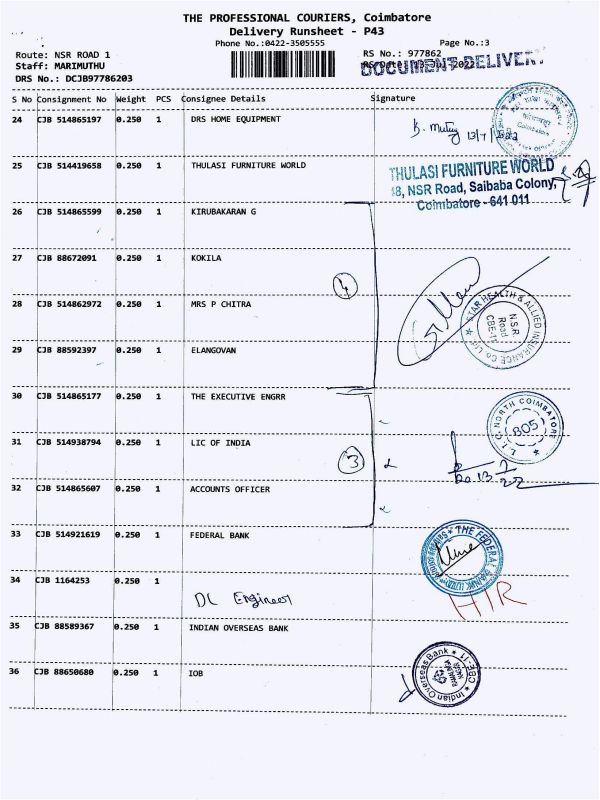 THE PROFESSIONAL COURIERS, Coimbatore
Delivery Runsheet - P43
Phone No.:0422-3505555
Page No.:3
Route: NSR ROAD 1
RS No.: 977862
Staff: MARIMUTHU
RS Date: 13 Jul 2022
DOCUMENT DELIVERY
DRS No.: DCJB97786203
S No Consignment No Weight PCS Consignee Details Signature
24 CJB 514865197 0.250 1 DRS HOME EQUIPMENT
13/7/2022
Coimbatore
25 CJB 514419658 0.250 1 THULASI FURNITURE WORLD
THULASI FURNITURE WORLD
48, NSR Road, Saibaba Colony,
Coimbatore - 641 011
26 CJB 514865599 0.250 1 KIRUBAKARAN G
27 CJB 88672091 0.250 1 KOKILA
4
28 CJB 514862972 0.250 1 MRS P CHITRA
STAR HEALTH & ALLIED INSURANCE CO LTD
N.S.R.
Road
CBE-11
29 CJB 88592397 0.250 1 ELANGOVAN
30 CJB 514865177 0.250 1 THE EXECUTIVE ENGRR
L.I.C. NORTH COIMBATORE
805
31 CJB 514938794 0.250 1 LIC OF INDIA
3
32 CJB 514865607 0.250 1 ACCOUNTS OFFICER
33 CJB 514921619 0.250 1 FEDERAL BANK
THE FEDERAL BANK
34 CJB 1164253 0.250 1
DC Engineer
35 CJB 88589367 0.250 1 INDIAN OVERSEAS BANK
36 CJB 88650680 0.250 1 IOB
Indian Overseas Bank